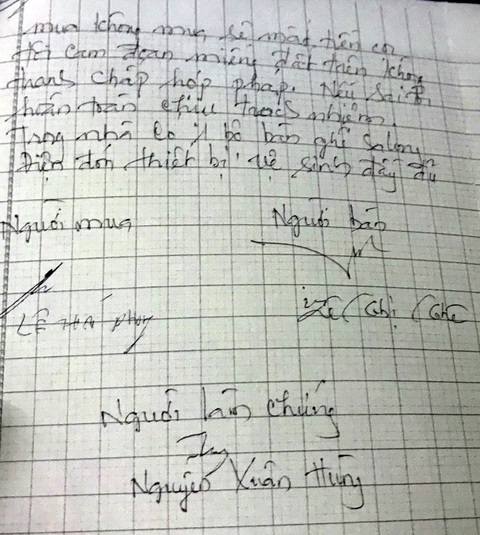 mua không mua sẽ mất tiền cọc
tôi cam đoan miếng đất trên không
thanh chấp hợp pháp. Nếu sai tôi
hoàn toàn chịu trách nhiệm.
Trong nhà có 1 bộ bàn ghế Salong
Điện đón thiết bị vệ sinh đầy đủ
Người mua Người bán
Lê Thị
Người làm chứng
Nguyễn Xuân Hùng